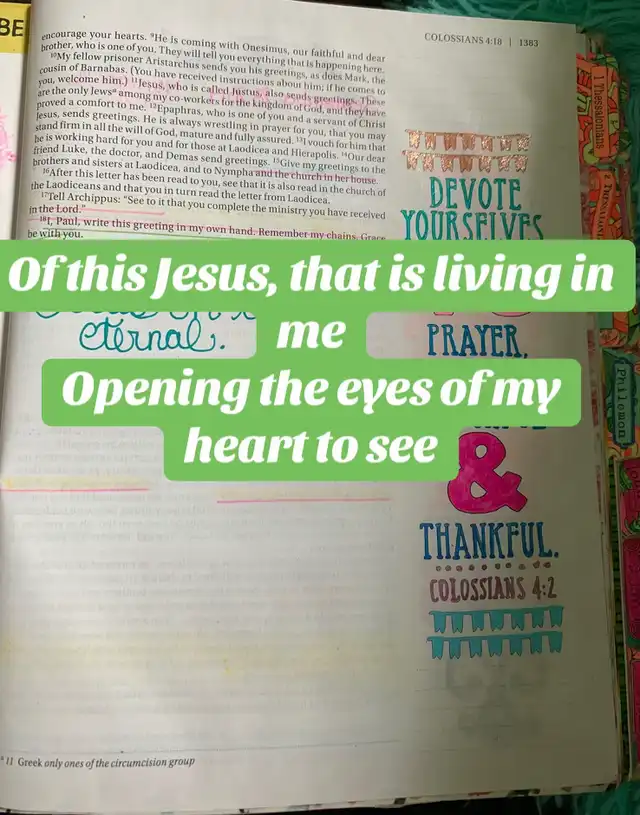 BE
COLOSSIANS 4:18 | 1383
encourage your hearts. ⁹He is coming with Onesimus, our faithful and dear
brother, who is one of you. They will tell you everything that is happening here.
¹⁰My fellow prisoner Aristarchus sends you his greetings, as does Mark, the
cousin of Barnabas. (You have received instructions about him; if he comes to
you, welcome him.) ¹¹Jesus, who is called Justus, also sends greetings. These
are the only Jewsᵃ among my co-workers for the kingdom of God, and they have
proved a comfort to me. ¹²Epaphras, who is one of you and a servant of Christ
Jesus, sends greetings. He is always wrestling in prayer for you, that you may
stand firm in all the will of God, mature and fully assured. ¹³I vouch for him that
he is working hard for you and for those at Laodicea and Hierapolis. ¹⁴Our dear
friend Luke, the doctor, and Demas send greetings. ¹⁵Give my greetings to the
brothers and sisters at Laodicea, and to Nympha and the church in her house.
¹⁶After this letter has been read to you, see that it is also read in the church of
the Laodiceans and that you in turn read the letter from Laodicea.
¹⁷Tell Archippus: “See to it that you complete the ministry you have received
in the Lord.”
¹⁸I, Paul, write this greeting in my own hand. Remember my chains. Grace
be with you.
Of this Jesus, that is living in
me
Opening the eyes of my
heart to see
eternal.
DEVOTE
YOURSELVES
PRAYER,
&
THANKFUL.
COLOSSIANS 4:2
1 Thessalonians
2 Thessalonians
Philemon
ᵃ 11 Greek only ones of the circumcision group